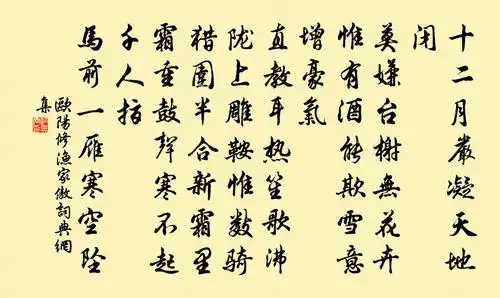 十二月嚴凝天地
闭
莫嫌台榭無花卉
惟有酒能欺雪意
增豪氣
直教耳热笙歌沸
陇上雕鞍惟数騎
猎圍半合新霜里
霜重鼓聲寒不起
千人指
馬前一雁寒空坠
歐陽修漁家傲詞典網
集